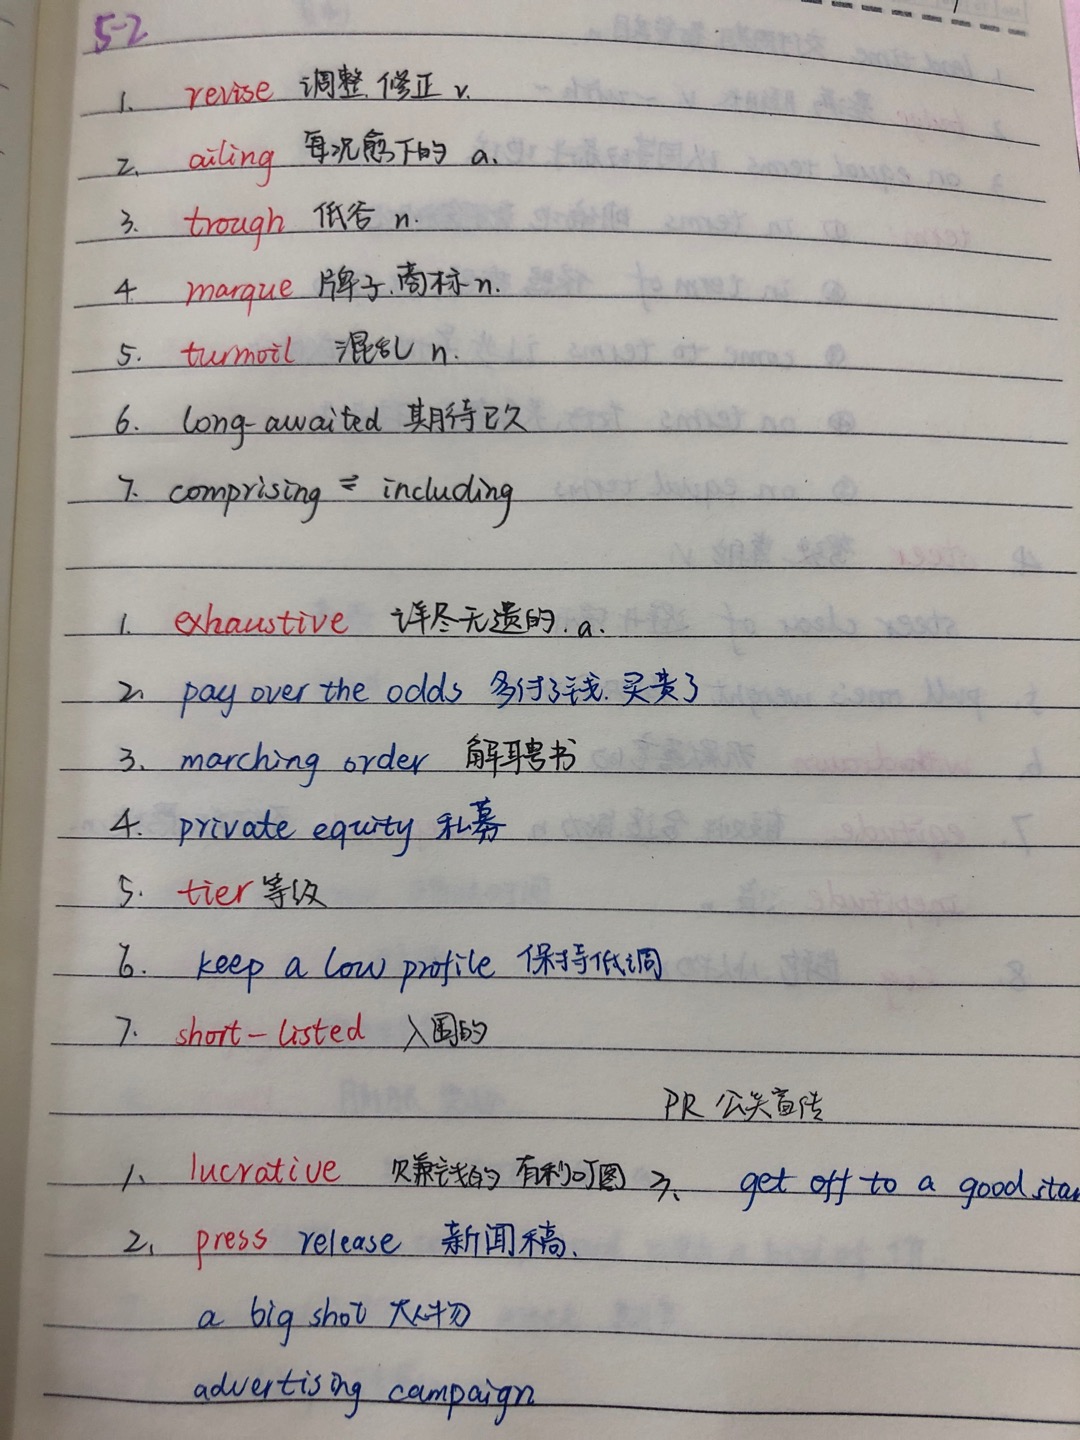 5-2
1. revise 调整 修正 v.
2. ailing 每况愈下的 a.
3. trough 低谷 n.
4 marque 牌子.商标 n.
5. turmoil 混乱 n.
6. long-awaited 期待已久
7. comprising = including
1. exhaustive 详尽无遗的.a.
2. pay over the odds 多付了钱.买贵了
3. marching order 解聘书
4. private equity 私募
5. tier 等级
6. keep a low profile 保持低调
7. short-listed 入围的
PR 公关宣传
1. lucrative 赚钱的 有利可图 3. get off to a good star
2. press release 新闻稿.
a big shot 大人物
advertising campaign